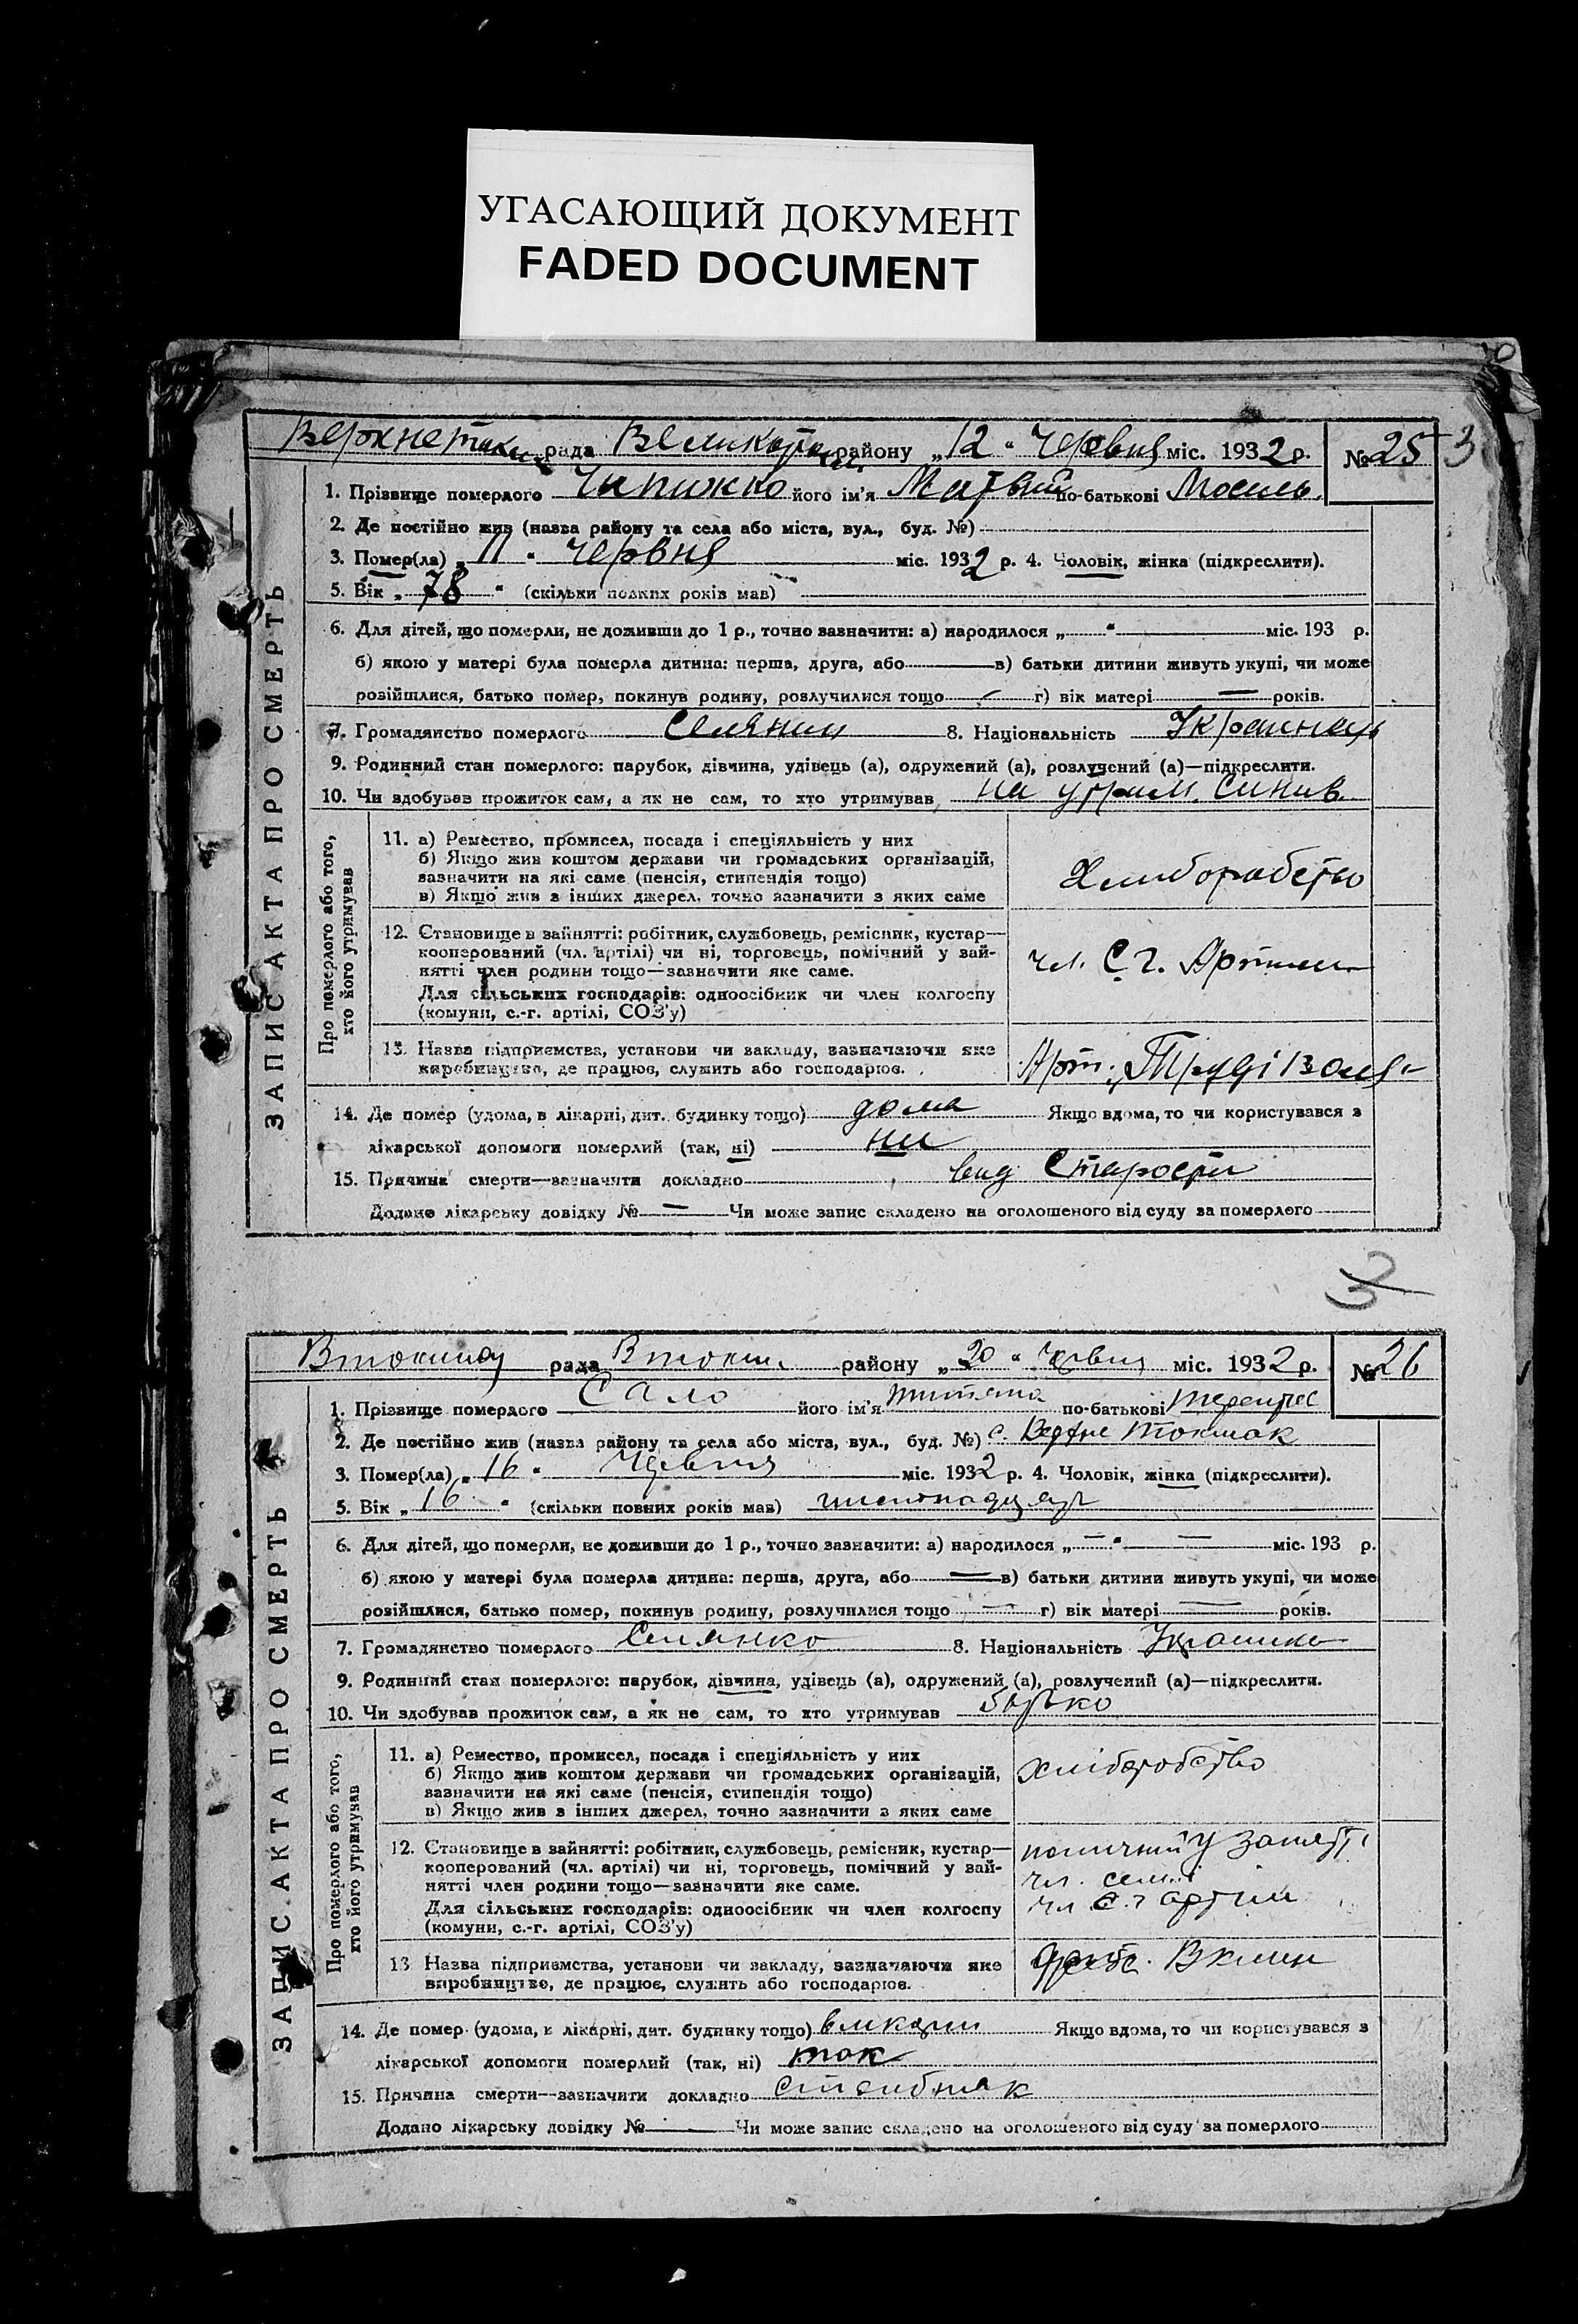 УГАСАЮЩИЙ ДОКУМЕНТ
FADED DOCUMENT
рада района „12“ Червня міс. 1932 р. № 25 3
1. Прізвище померлого Чапижко його ім'я Матвий по-батькові Мосиль.
2. Де постійно жив (назва району та села або міста, вул., буд. №)
3. Помер(ла) „11“ Червня міс. 1932 р. 4. Чоловік, жінка (підкреслити).
5. Вік „78“ (скільки повних років мав)
6. Для дітей, що померли, не доживши до 1 р., точно зазначити: а) народилося „ “ міс. 193 р.
б) якою у матері була померла дитина: перша, друга, або — в) батьки дитини живуть укупі, чи може
розійшлися, батько помер, покинув родину, розлучилися тощо — г) вік матері — років.
7. Громадянство померлого Селянин 8. Національність Українець
9. Родинний стан померлого: парубок, дівчина, удівець (а), одружений (а), розлучений (а)—підкреслити.
10. Чи здобував прожиток сам, а як не сам, то хто утримував на утрим. Синив.
ЗАПИС АКТА ПРО СМЕРТЬ
Про померлого або того,
хто його утримував
11. а) Ремество, промисел, посада і спеціяльність у них
б) Якщо жив коштом держави чи громадських організацій,
зазначити на які саме (пенсія, стипендія тощо)
в) Якщо жив з інших джерел, точно зазначити з яких саме
Хлиборобство
12. Становище в зайнятті: робітник, службовець, ремісник, кустар—
кооперований (чл. артілі) чи ні, торговець, помічний у зай-
нятті член родини тощо—зазначити яке саме.
Для сільських господарів: одноосібник чи член колгоспу
(комуни, с.-г. артілі, СОЗ'у)
чл. С.г. Артили
13. Назва підприємства, установи чи закладу, зазначаючи яке
виробництво, де працює, служить або господарює.
Арт. „Труд і Воля“
14. Де помер (удома, в лікарні, дит. будинку тощо) дома Якщо вдома, то чи користувався з
лікарської допомоги померлий (так, ні) ни
15. Причина смерти—зазначити докладно вид Старости
Додано лікарську довідку № — Чи може запис складено на оголошеного від суду за померлого
3
рада района „20“ Червня міс. 1932 р. № 26
1. Прізвище померлого Сало його ім'я по-батькові
2. Де постійно жив (назва району та села або міста, вул., буд. №) с. Верхне Токмак
3. Помер(ла) „16“ Червня міс. 1932 р. 4. Чоловік, жінка (підкреслити).
5. Вік „16“ (скільки повних років мав) шистнадцять
6. Для дітей, що померли, не доживши до 1 р., точно зазначити: а) народилося „—“ — міс. 193 р.
б) якою у матері була померла дитина: перша, друга, або — в) батьки дитини живуть укупі, чи може
розійшлися, батько помер, покинув родину, розлучилися тощо — г) вік матері — років.
7. Громадянство померлого Селянко 8. Національність Украинка
9. Родинний стан померлого: парубок, дівчина, удівець (а), одружений (а), розлучений (а)—підкреслити.
10. Чи здобував прожиток сам, а як не сам, то хто утримував батько
ЗАПИС АКТА ПРО СМЕРТЬ
Про померлого або того,
хто його утримував
11. а) Ремество, промисел, посада і спеціяльність у них
б) Якщо жив коштом держави чи громадських організацій,
зазначити на які саме (пенсія, стипендія тощо)
в) Якщо жив з інших джерел, точно зазначити з яких саме
хліборобство
12. Становище в зайнятті: робітник, службовець, ремісник, кустар—
кооперований (чл. артілі) чи ні, торговець, помічний у зай-
нятті член родини тощо—зазначити яке саме.
Для сільських господарів: одноосібник чи член колгоспу
(комуни, с.-г. артілі, СОЗ'у)
помичний у занятті
чл. семії
чл с.г артили
13 Назва підприємства, установи чи закладу, зазначаючи яке
виробництво, де працює, служить або господарює.
14. Де помер (удома, в лікарні, дит. будинку тощо) в ликарни Якщо вдома, то чи користувався з
лікарської допомоги померлий (так, ні) так
15. Причина смерти—зазначити докладно столбняк
Додано лікарську довідку № Чи може запис складено на оголошеного від суду за померлого